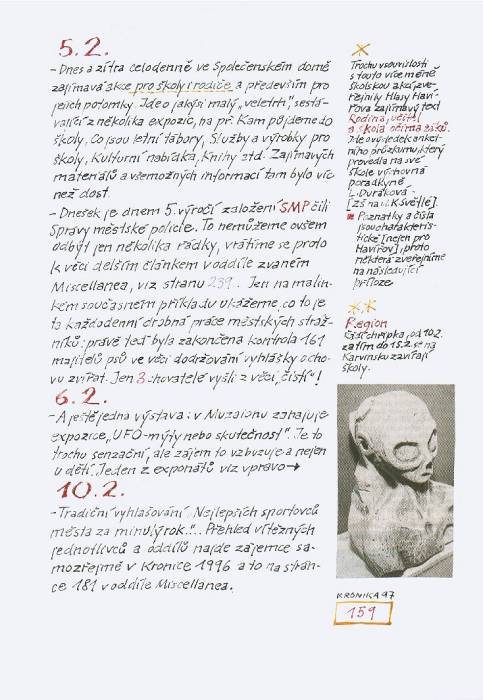 5.2.
- Dnes a zítra celodenně ve Společenském domě
zajímavá akce pro školy i rodiče a především pro
jejich potomky. Jde o jakýsi malý „veletrh", sestá-
vající z několika expozic, na př. Kam půjdeme do
školy, Co jsou letní tábory, Služby a výrobky pro
školy, Kulturní nabídka, Knihy atd. Zajímavých
materiálů a všemožných informací tam bylo víc
než dost.
- Dnešek je dnem 5. výročí založení SMP čili
Správy městské policie. To nemůžeme ovšem
odbýt jen několika řádky, vrátíme se proto
k věci delším článkem v oddíle zvaném
Miscellanea, viz stranu 239. Jen na malin-
kém současném příkladu ukážeme, co to je
ta každodenní drobná práce městských stráž-
níků: právě teď byla zakončena kontrola 161
majitelů psů ve věci dodržování vyhlášky o cho-
vu zvířat. Jen 3 chovatelé vyšli z věci „čistí"!
6.2.
- A ještě jedna výstava: v Muzaionu zahajuje
expozice „UFO - mýty nebo skutečnost". Je to
trochu senzační, ale zájem to vzbuzuje a nejen
u dětí. Jeden z exponátů viz vpravo →
10.2.
- Tradiční vyhlašování „Nejlepších sportovců
města za minulý rok..." Přehled vítězných
jednotlivců a oddílů najde zájemce sa-
mozřejmě v Kronice 1996 a to na strán-
ce 181 v oddíle Miscellanea.
Trochu v souvislosti
s touto více méně
školskou akcí zve-
řejnily Hlasy Haví-
řova zajímavý text
Rodina, učitel
a škola očima žáků.
Jde o výsledek anket-
ního průzkumu, který
provedla na své
škole výchovná
poradkyně
L. Ďuráková
[ZŠ na ul. K. Světlé].
Poznatky a čísla
jsou charakteris-
tické [nejen pro
Havířov], proto
některá zveřejníme
na následující
příloze
Region
Čádí chřipka, od 10.2.
zatím do 15.2. se na
Karvinsku zavírají
školy.
KRONIKA 97
159